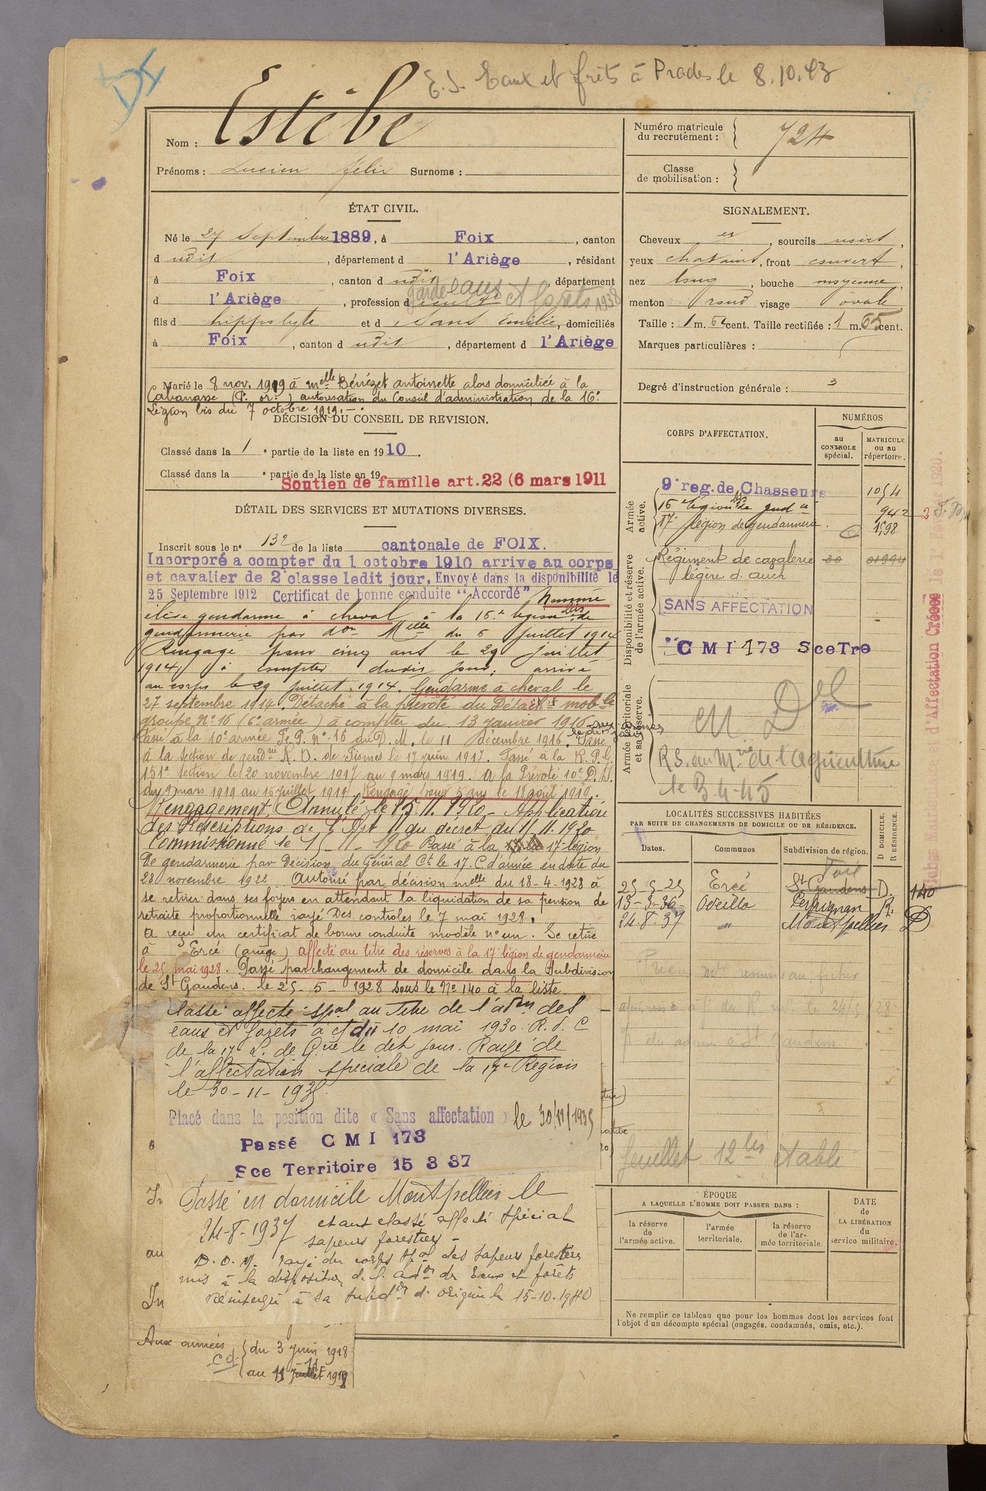 E.S. Eaux et frêts à Prades le 8.10.43
Nom : Estèbe
Prénoms : Lucien Félix Surnoms :
Numéro matricule du recrutement : 724
Classe de mobilisation :
ÉTAT CIVIL.
Né le 27 Septembre 1889, à Foix, canton
d udit, département d l'Ariège, résidant
à Foix, canton d udit, département
d l'Ariège, profession d garde eaux et forêts 1938
fils d hippolyte et d Sans Emilie, domiciliés
à Foix, canton d udit, département d l'Ariège
Marié le 8 nov. 1919 à melle Bénézet antoinette alors domiciliée à la
Cabanasse (P. or.) autorisation du Conseil d'administration de la 16e
Légion bis du 7 octobre 1919.-.
SIGNALEMENT.
Cheveux, sourcils
yeux chatains, front couvert,
nez long, bouche moyenne,
menton rond visage ovale
Taille : 1 m. cent. Taille rectifiée : 1 m. 65 cent.
Marques particulières :
Degré d'instruction générale : 3
DÉCISION DU CONSEIL DE REVISION.
Classé dans la 1e partie de la liste en 1910.
Classé dans la e partie de la liste en 19
Soutien de famille art. 22 (6 mars 1911
DÉTAIL DES SERVICES ET MUTATIONS DIVERSES.
Inscrit sous le n° 132 de la liste cantonale de FOIX.
Incorporé à compter du 1 octobre 1910 arrive au corps
et cavalier de 2e classe ledit jour. Envoyé dans la disponibilité le
25 Septembre 1912 Certificat de bonne conduite "Accordé" Nommé
élève gendarme à cheval à la 16e légion bis de
gendarmerie par don Mlle du 6 juillet 1914
Rengagé pour cinq ans le 29 juillet
1914 à compter dudit jour, arrivé
au corps le 29 juillet 1914. Gendarme à cheval le
27 septembre 1914. Détaché à la prévôté du
groupe N° 16 (6e armée) à compter du 13 janvier 1916
Passé à la 10e armée F. P. n° 16 au D. M. le 11 décembre 1916. Passé
à la section de gendrie R. D. de Fismes le 17 juin 1917. Passé à la
151e section le 20 novembre 1917 au 9 mars 1919. A la Prévôté 10e D. I.
du 9 mars 1919 au 16 juillet 1919 Rengagé pour 5 ans le 18 août 1919.
Rengagement Annulé le 15 11 1920 - Application
des Prescriptions de du décret du 11.11.1920
Commissionné le Passé à la 17e légion
de gendarmerie par Décision du Général Ct le 17. C d'armée en date du
28 novembre 1922 Autorisé par décision melle du 18-4-1928 à
se retirer dans ses foyers en attendant la liquidation de sa pension de
retraite proportionnelle rayé Des controles le 7 mai 1928.
A reçu un certificat de bonne conduite modèle n° un. Se retire
à Ercé (ariège) affecté au titre des réserves à la 17e légion de gendarmerie
le 25 mai 1928. Passé par changement de domicile dans la Subdivision
de St Gaudens. le 25-5-1928 sous le N° 140 à la liste
Classé affecté spal au titre de l'adon des
eaux et forêts à ct du 10 mai 1930. R. d. C
de la 17e L. de Gie le dit jour. Rayé de
l'affectation spéciale de la 17e Région
le 30-11-1935.
Placé dans la position dite « Sans affectation » le 30/11/1935
Passé C M I 173
Sce Territoire 15 3 37
Passé en domicile Montpellier le
24-8-1937 étant classé affecté spécial
sapeurs forestiers -
D.O.M. rayé du corps spal des Sapeurs forestiers
mis à la disposition de l'adon des Eaux et forêts
Réintégré à sa subdon d'origine le 15-10-1940
Aux armées
C d
du 3 juin 1918
CORPS D'AFFECTATION.
NUMÉROS
au CONTROLE spécial.
MATRICULE ou au répertoire.
Armée active.
9e reg. de Chasseurs 1054
16e légion bis de gendie 942
17e légion de gendarmerie 1598
Disponibilité et réserve de l'armée active.
Régiment de cavalerie
légère d'auch
SANS AFFECTATION
C M I 173 SceTre
Armée territoriale et sa réserve.
en Del
R.S. au Mre de l'Agriculture
le 3-4-45
LOCALITÉS SUCCESSIVES HABITÉES
PAR SUITE DE CHANGEMENTS DE DOMICILE OU DE RÉSIDENCE.
Dates. Communes Subdivision de région. D DOMICILE. R RÉSIDENCE.
Foix
25-5-28 Ercé St Gaudens D. 140
13-3-36 Oseilla Perpignan R.
24-8-37 " Montpellier D
feuillet 12 bis établi
ÉPOQUE
A LAQUELLE L'HOMME DOIT PASSER DANS :
la réserve de l'armée active.
l'armée territoriale.
la réserve de l'armée territoriale.
DATE de LA LIBÉRATION du service militaire.
Ne remplir ce tableau que pour les hommes dont les services font
l'objet d'un décompte spécial (engagés, condamnés, omis, etc.).